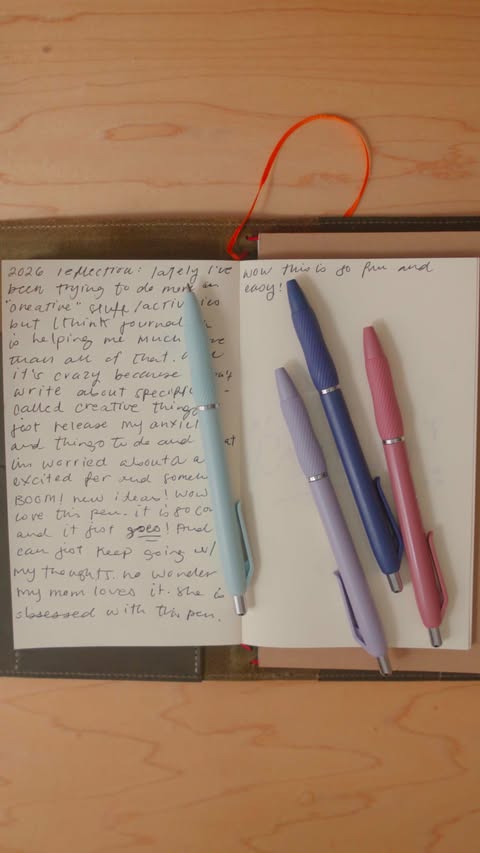 2026 reflection: lately I've
been trying to do more
"creative" stuff/activ
but I think journal
is helping me much
than all of that.
it's crazy because
write about specific -
called creative things
just release my anxi
and things to do and
im worried about
excited for and someh
BOOM! new ideas! Wow
love this pen. it is so co
and it just goes! And
can just keep going w/
my thoughts. no wonder
my mom loves it. She is
obsessed with this pen.
Wow this is so fun and
easy!